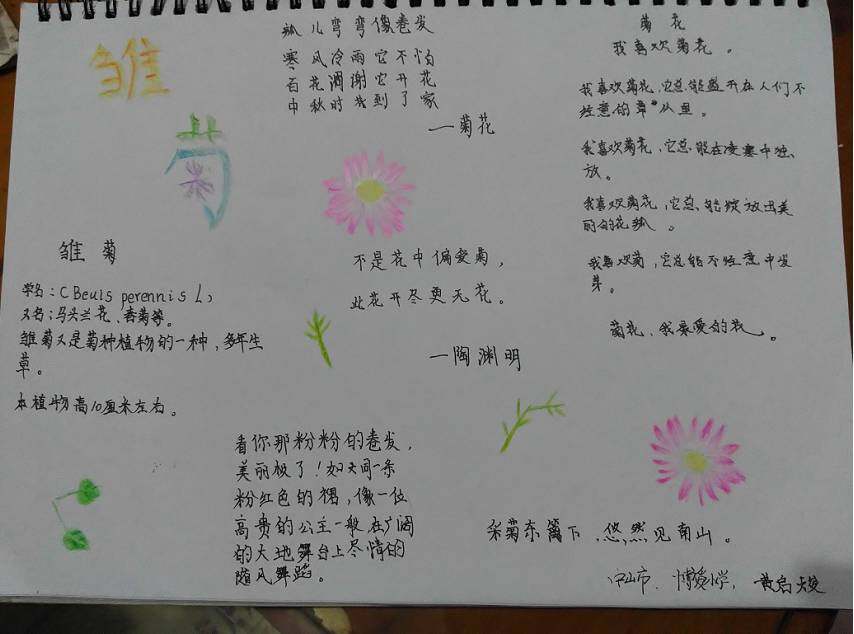 雏
菊
瓢儿弯弯像卷发
寒风冷雨它不怕
百花凋谢它开花
中秋时我到了家
—菊花
菊花
我喜欢菊花。
我喜欢菊花,它总能盛开在人们不
经意的草丛里。
我喜欢菊花,它总能在凌寒中独
放。
我喜欢菊花,它总能绽放出美
丽的花瓢。
我喜欢菊,它总能不经意中发
芽。
菊花,我最爱的花。
雏菊
学名:(Beuls perennis L)
又名:马头兰花、春菊等。
雏菊又是菊种植物的一种,多年生
草。
本植物高10厘米左右。
不是花中偏爱菊,
此花开尽更无花。
—陶渊明
看你那粉粉的卷发,
美丽极了!如同一条
粉红色的裙,像一位
高贵的公主一般在广阔
的大地舞台上尽情的
随风舞蹈。
采菊东篱下,悠然见南山。
中山市、博爱小学,